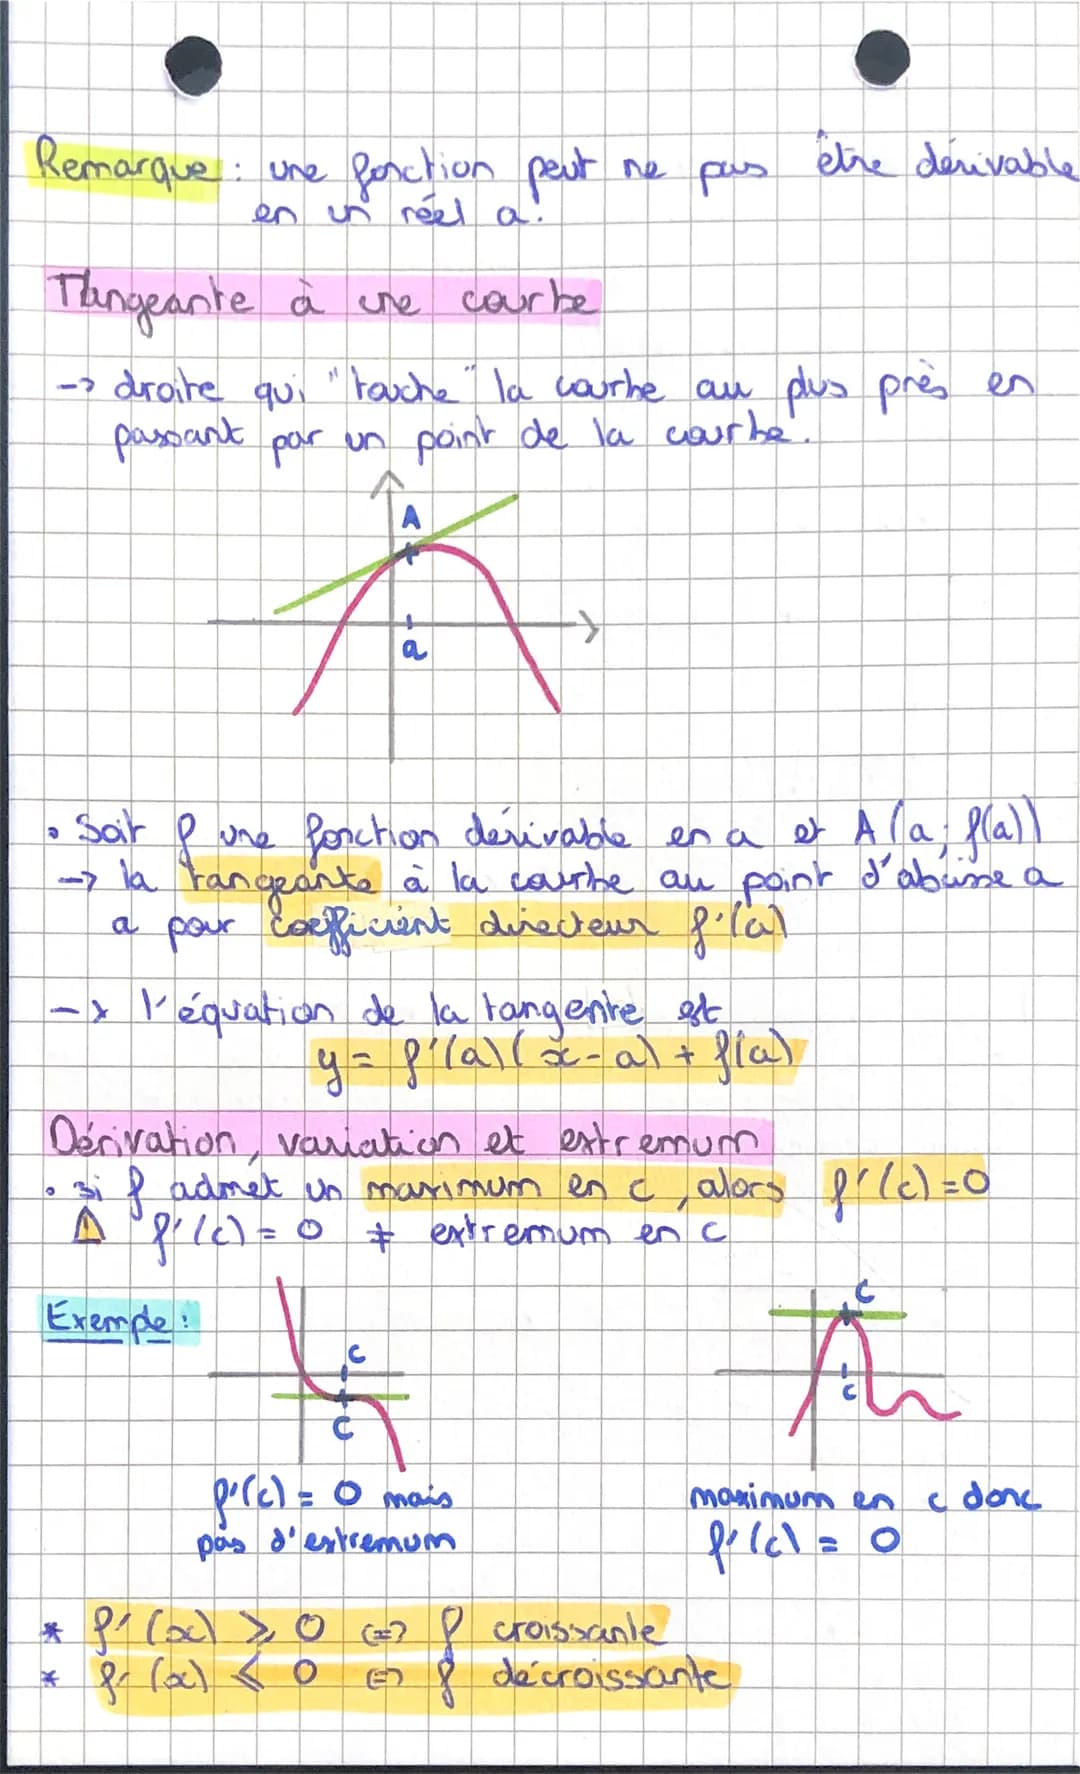 Remarque : une fonction peut ne pas être dérivable
en un réel a.
Tangeante à une courbe
-> droite qui "touche" la courbe au plus près en
passant par un point de la courbe.
A
a
• Soit f une fonction dérivable en a et A(a; f(a))
-> la tangeante à la courbe au point d'abscisse a
a pour coefficient directeur f'(a)
-> l'équation de la tangente est
y = f'(a)(x-a) + f(a)
Dérivation, variation et extremum
• si f admet un maximum en c, alors f'(c)=0
⚠ f'(c) = 0 ≠ extremum en c
Exemple :
c
C
C
c
f'(c) = 0 mais
pas d'extremum
maximum en c donc
f'(c) = 0
* f'(x) ⩾ 0 <=> f croissante
* f'(x) ⩽ 0 <=> f décroissante